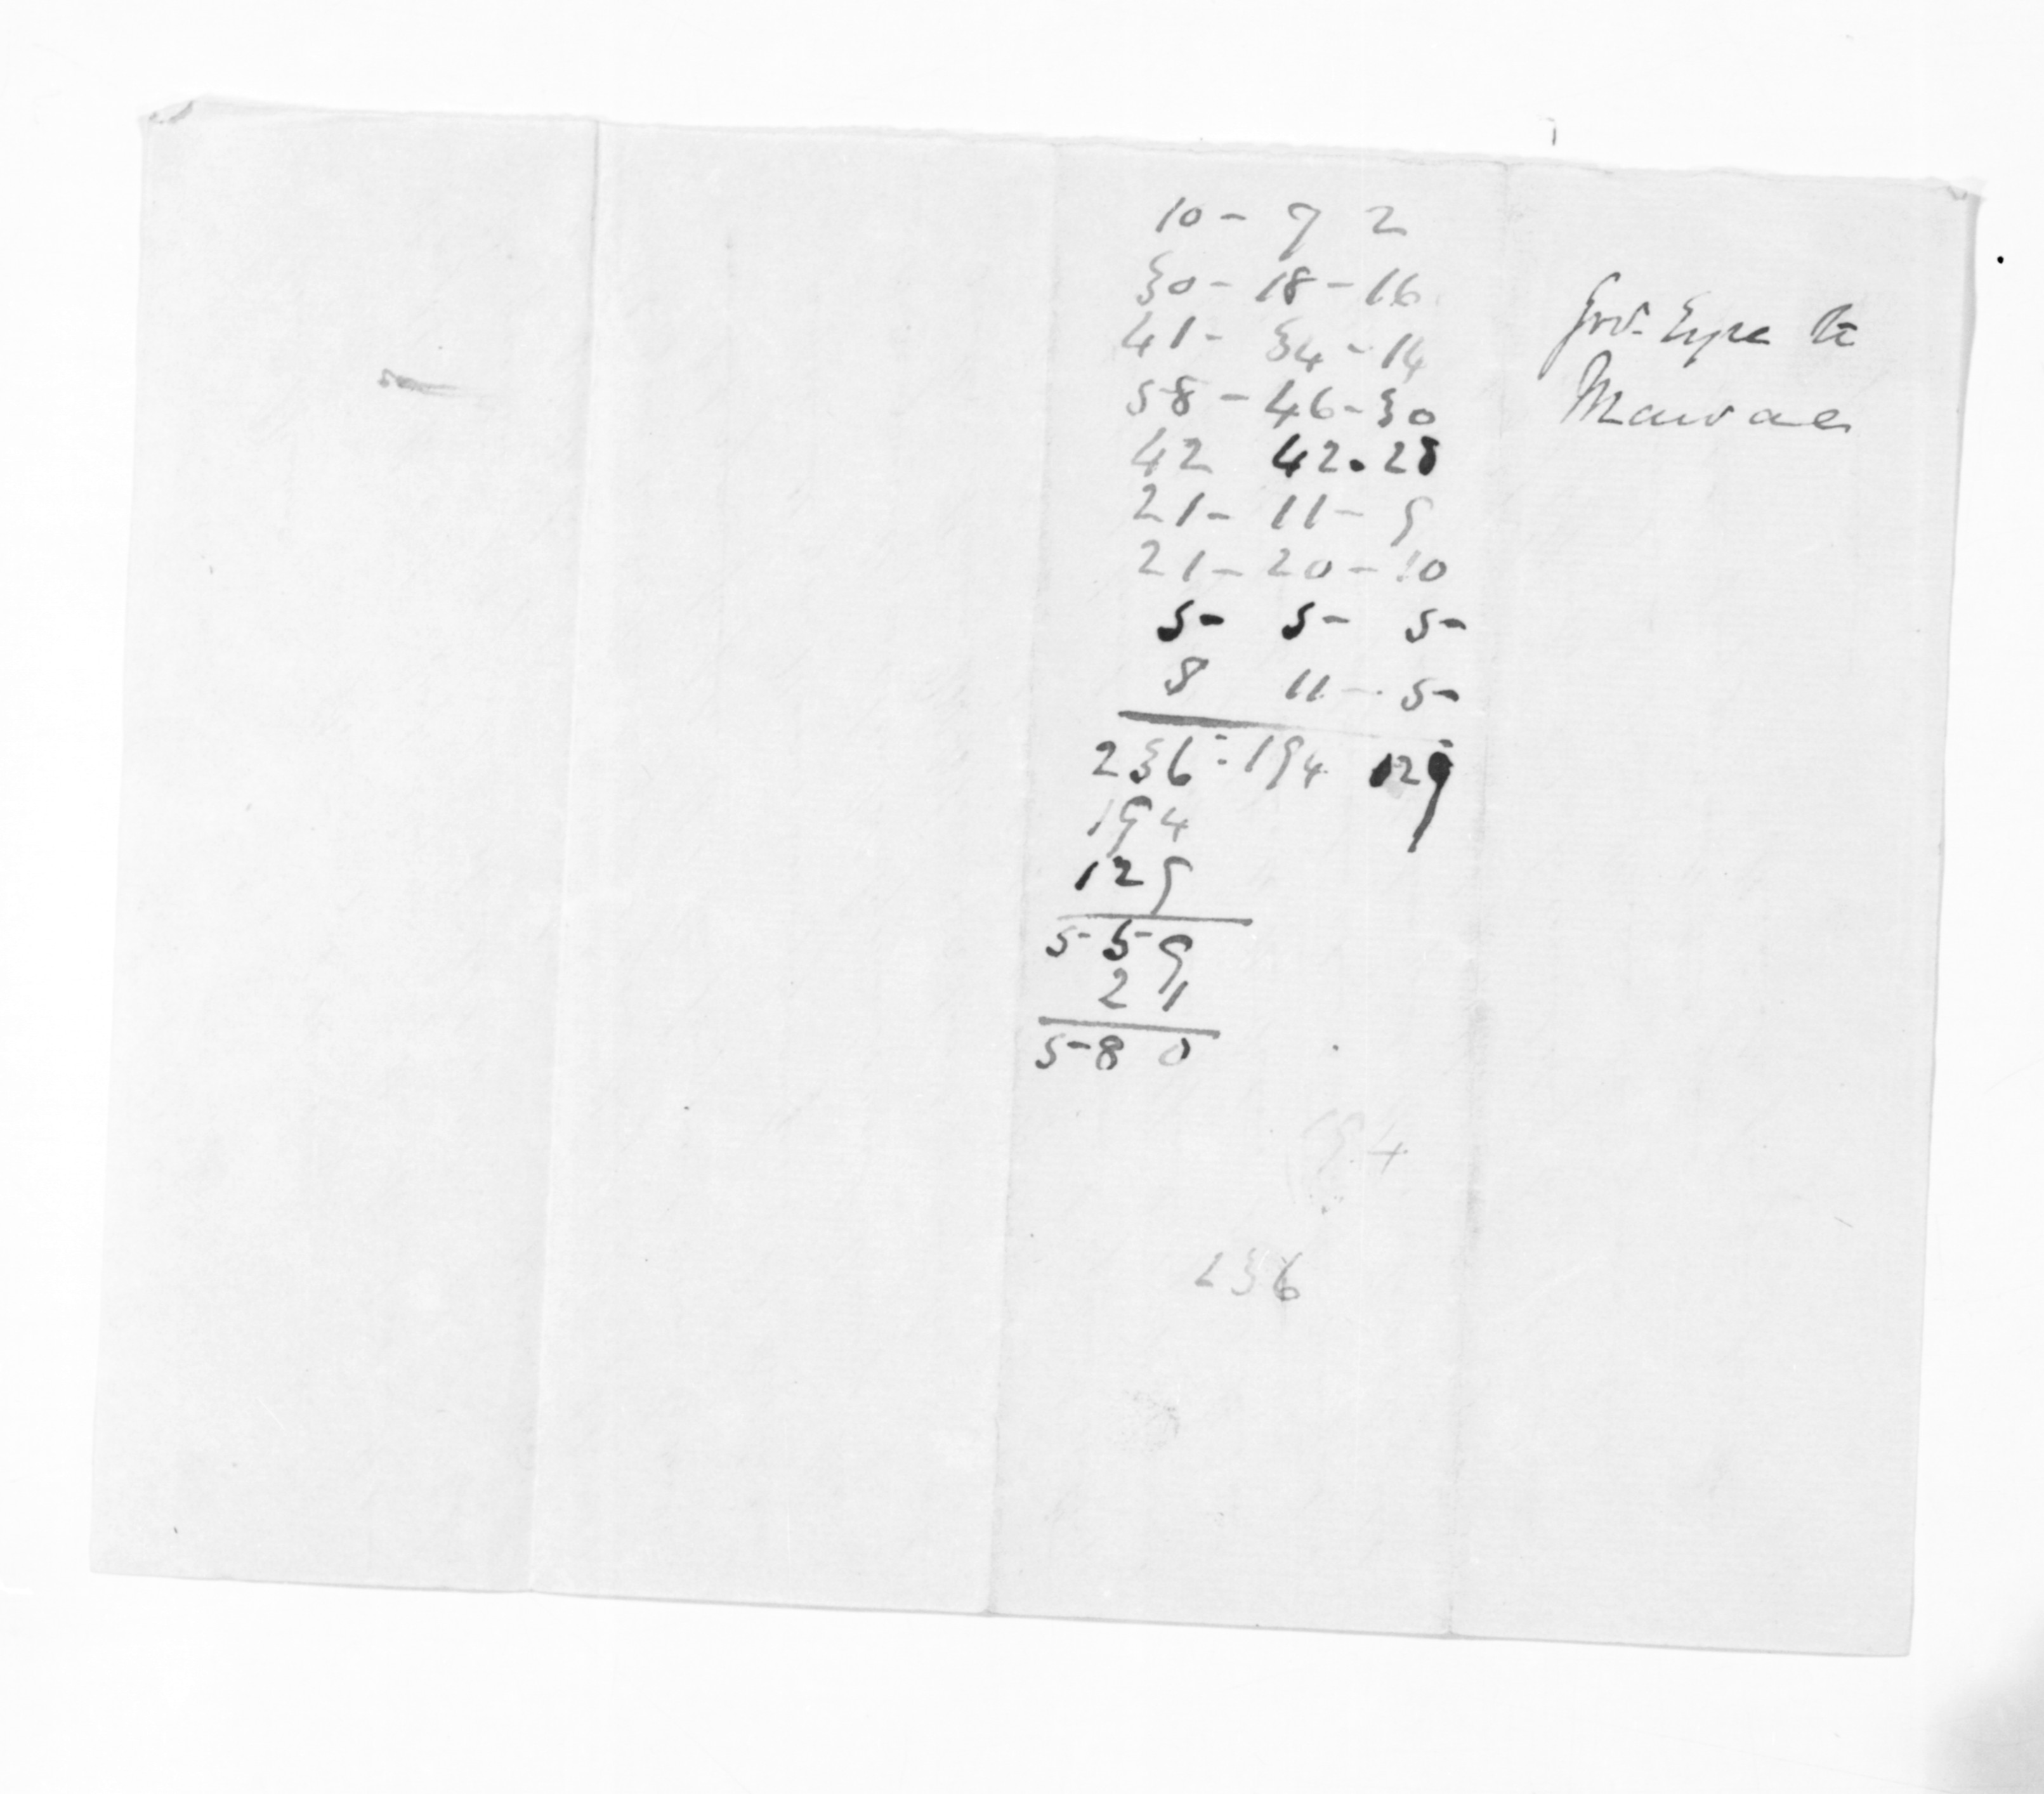 10 - 7 2
30 - 18 - 16
41 - 34 - 14
58 - 46 - 30
42 42 . 28
21 - 11 - 9
21 - 20 - 10
5 - 5 - 5
8 11 - 5
236 : 194 129
194
129
559
21
580
194
236
Govr Eyre to